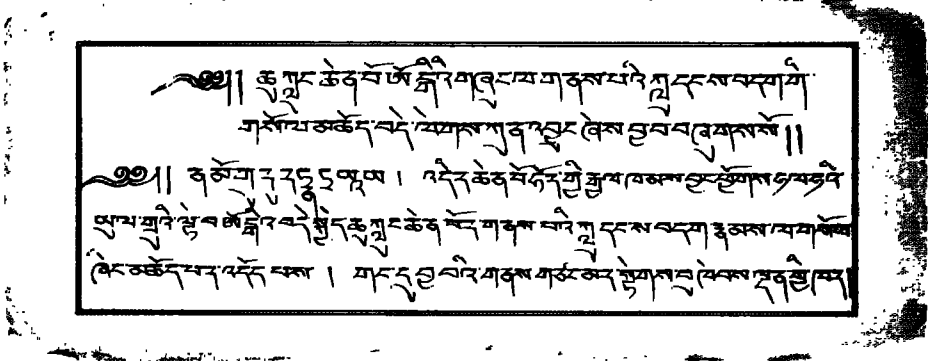 ༄༅།། ཆུ་ཀླུང་ཆེན་པོ་ཨོ་རྒྱིའི་གཞུང་ལ་གནས་པའི་ཀླུ་དང་ས་བདག་གི་
གསོལ་མཆོད་བདེ་ལེགས་ཀུན་འབྱུང་ཞེས་བྱ་བ་བཞུགས་སོ།།
༄༅།། ན་མོ་གུ་རུ་ འདིར་ཆེན་པོ་ཧོར་གྱི་རྒྱལ་ཁམས་བྱང་ཕྱོགས་
ཡུལ་གྲུའི་ལྟེ་བ་ བདེ་སྐྱིད་ཆུ་ཀླུང་ཆེན་པོར་གནས་པའི་ཀླུ་དང་ས་བདག་རྣམས་ལ་གསོལ་
ཞིང་མཆོད་པར་འདོད་པས། གང་དུ་བྱ་བའི་གནས་གཙང་མར་སྟེགས་བུ་ཁེབས་ལྡན་གྱི་ཁར།